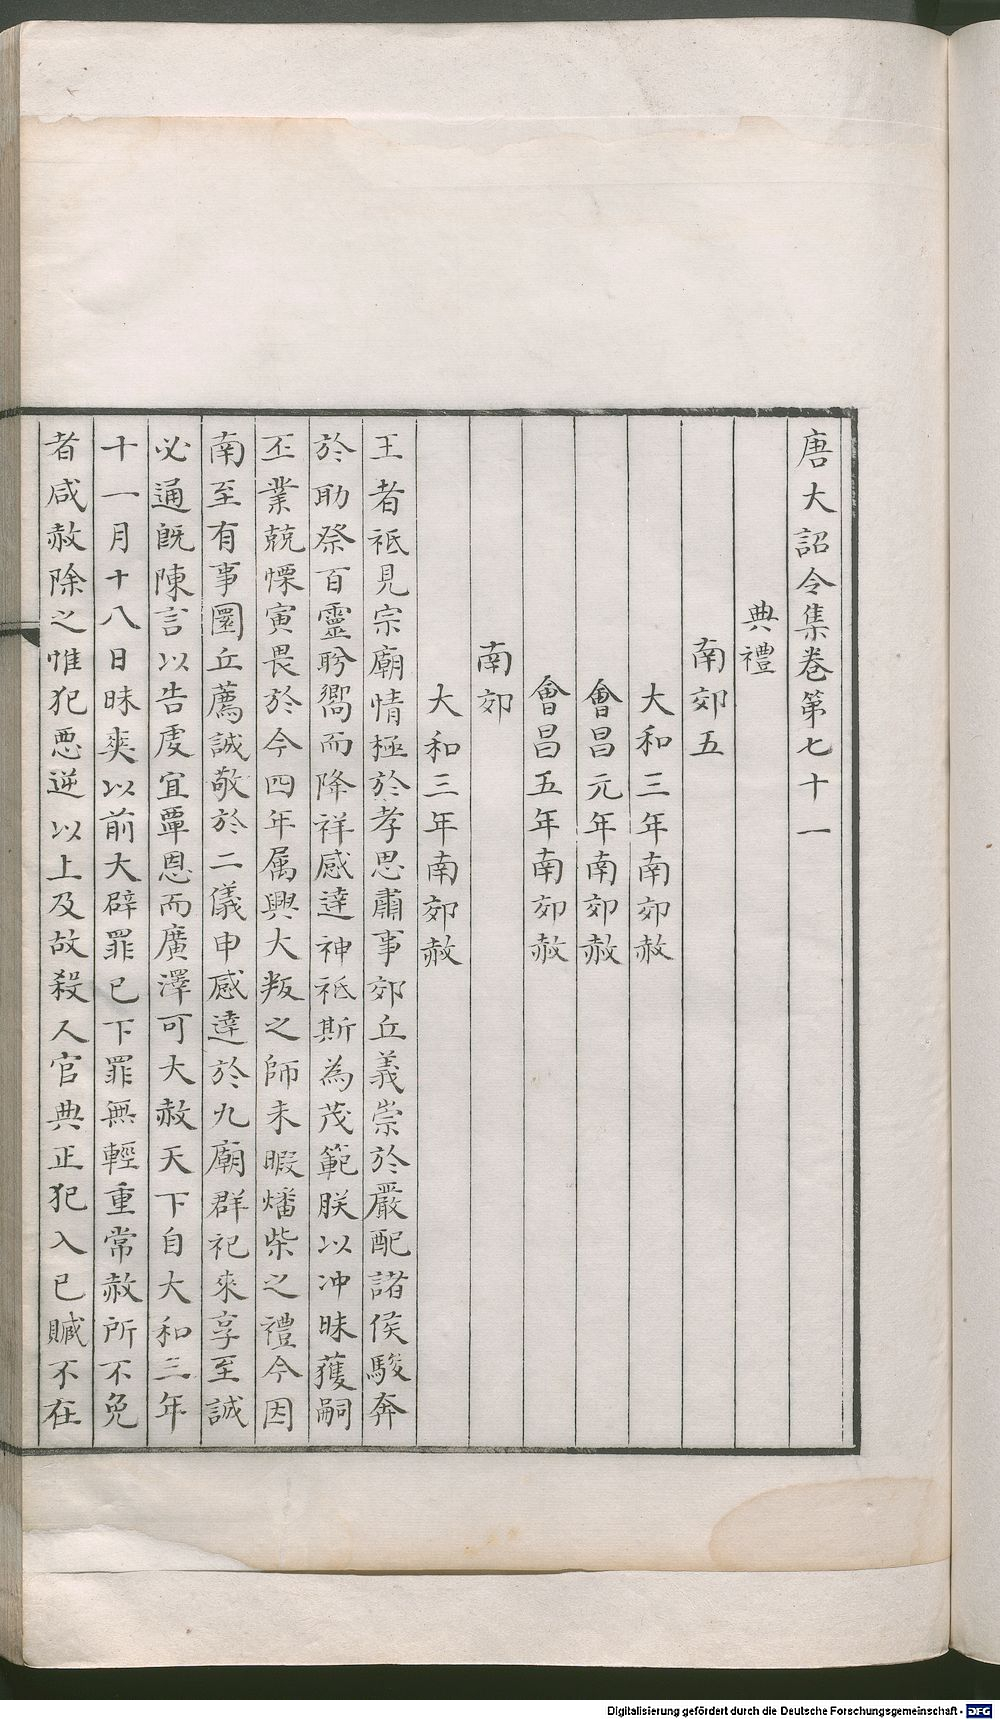 唐大詔令集卷第七十一
典禮
南郊五
大和三年南郊赦
會昌元年南郊赦
會昌五年南郊赦
南郊
大和三年南郊赦
王者祗見宗廟情極於孝思肅事郊丘義崇於嚴配諸侯駿奔
於助祭百靈肹嚮而降祥感達神祗斯為茂範朕以冲昧獲嗣
丕業兢慄寅畏於今四年属興大叛之師未暇燔柴之禮今因
南至有事圜丘薦誠敬於二儀申感達於九廟群祀來享至誠
必通旣陳言以告虔宜覃恩而廣澤可大赦天下自大和三年
十一月十八日昧爽以前大辟罪已下罪無輕重常赦所不免
者咸赦除之惟犯悪逆以上及故殺人官典正犯入已贓不在
Digitalisierung gefördert durch die Deutsche Forschungsgemeinschaft - DFG